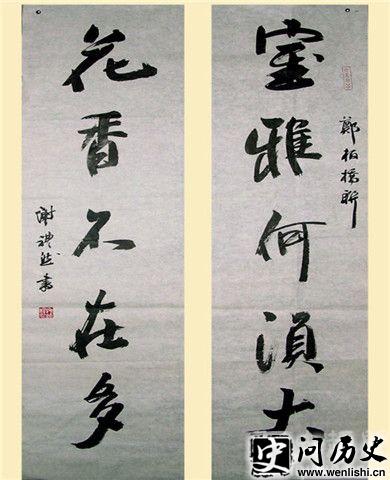 室雅何須大
鄭板橋聯
花香不在多
问历史
www.wenlishi.cn